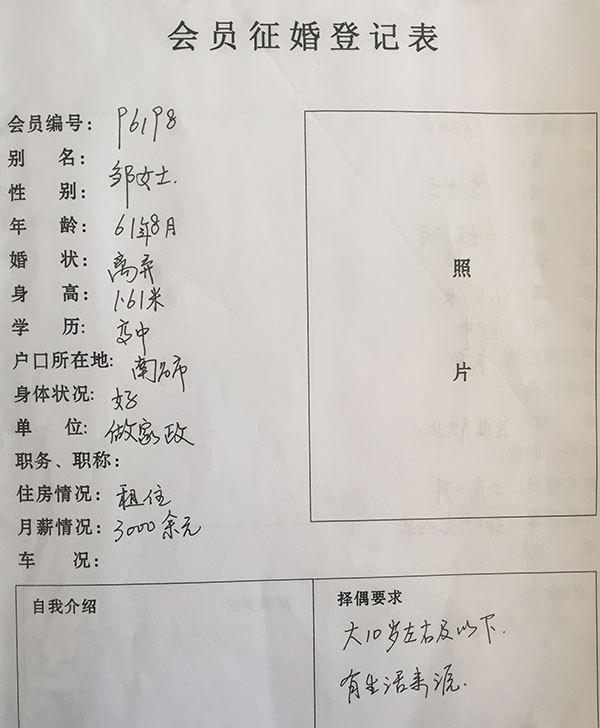 会员征婚登记表
会员编号: 96198
别 名:
性 别: 邹女士.
年 龄: 61年8月
婚 状: 离异
身 高: 1.61米
学 历: 高中
户口所在地: 南名市
身体状况: 好
单 位: 做家政
职务、职称:
住房情况: 租住
月薪情况: 3000余元
车 况:
照
片
自我介绍
择偶要求
大10岁左右及以下.
有生活来源.